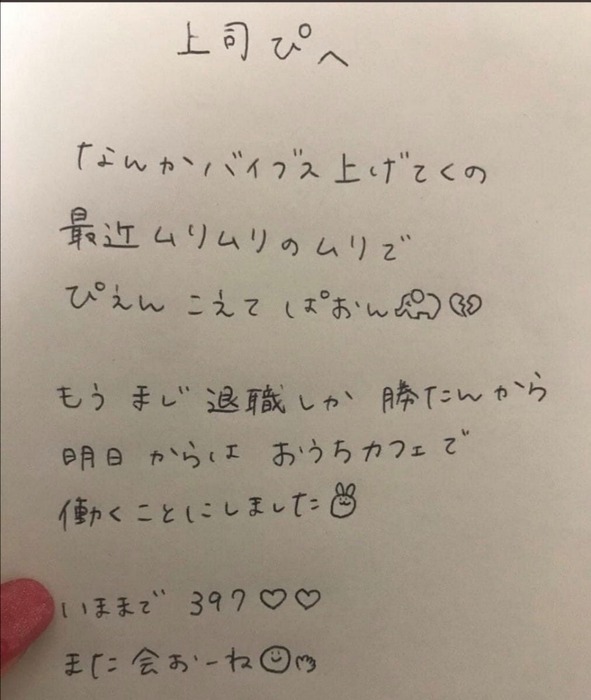 上司ぴへ
なんかバイブス上げてくの
最近ムリムリのムリで
ぴえん こえて ぱおん🐘💔
もう まじ 退職しか 勝たんから
明日 からは おうちカフェで
働くことにしました🐰
いままで 397♡♡
また会おーね☺